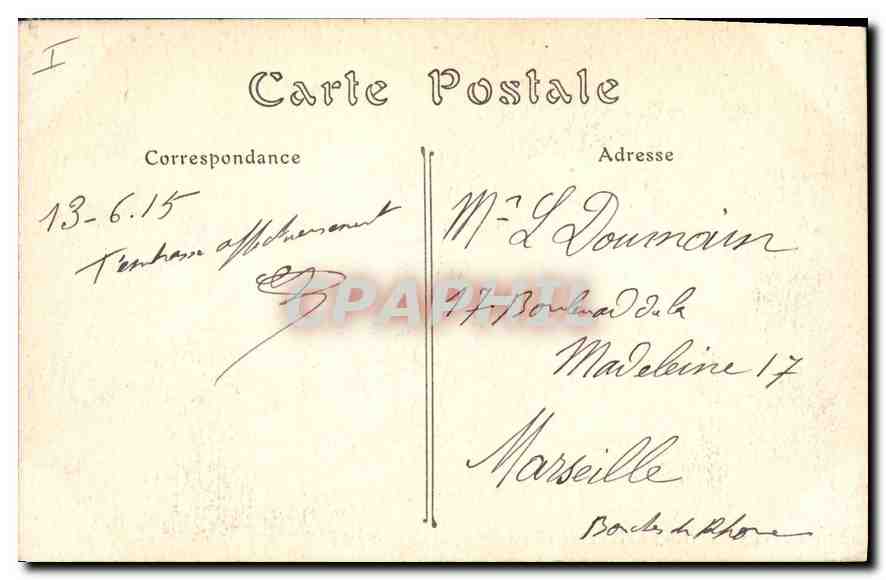 I
Carte Postale
Correspondance
13-6.15
T'embrasse affectueusement
Adresse
Mr L Doumain
17. Boulevard de la
Madeleine 17
Marseille
Bouches du Rhône
CPAPHIL